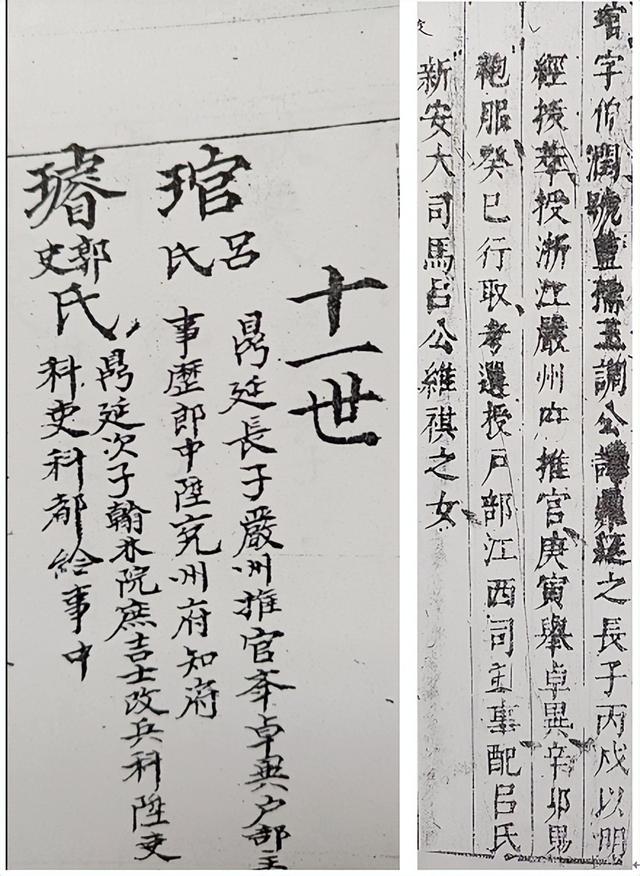 十一世
琯
呂氏
昺廷長子嚴州推官卓異户部主
事歷郎中陞兖州府知府
璿
郭氏
史
昺廷次子翰林院庶吉士改兵科陞吏
科吏科都給事中
琯字仰潤號
公
之長子丙戌以明
經授
授浙江嚴州府推官庚寅舉卓異辛卯
袍服癸巳行取考選授戸部江西司主事配呂氏
新安大司馬呂公維祺之女